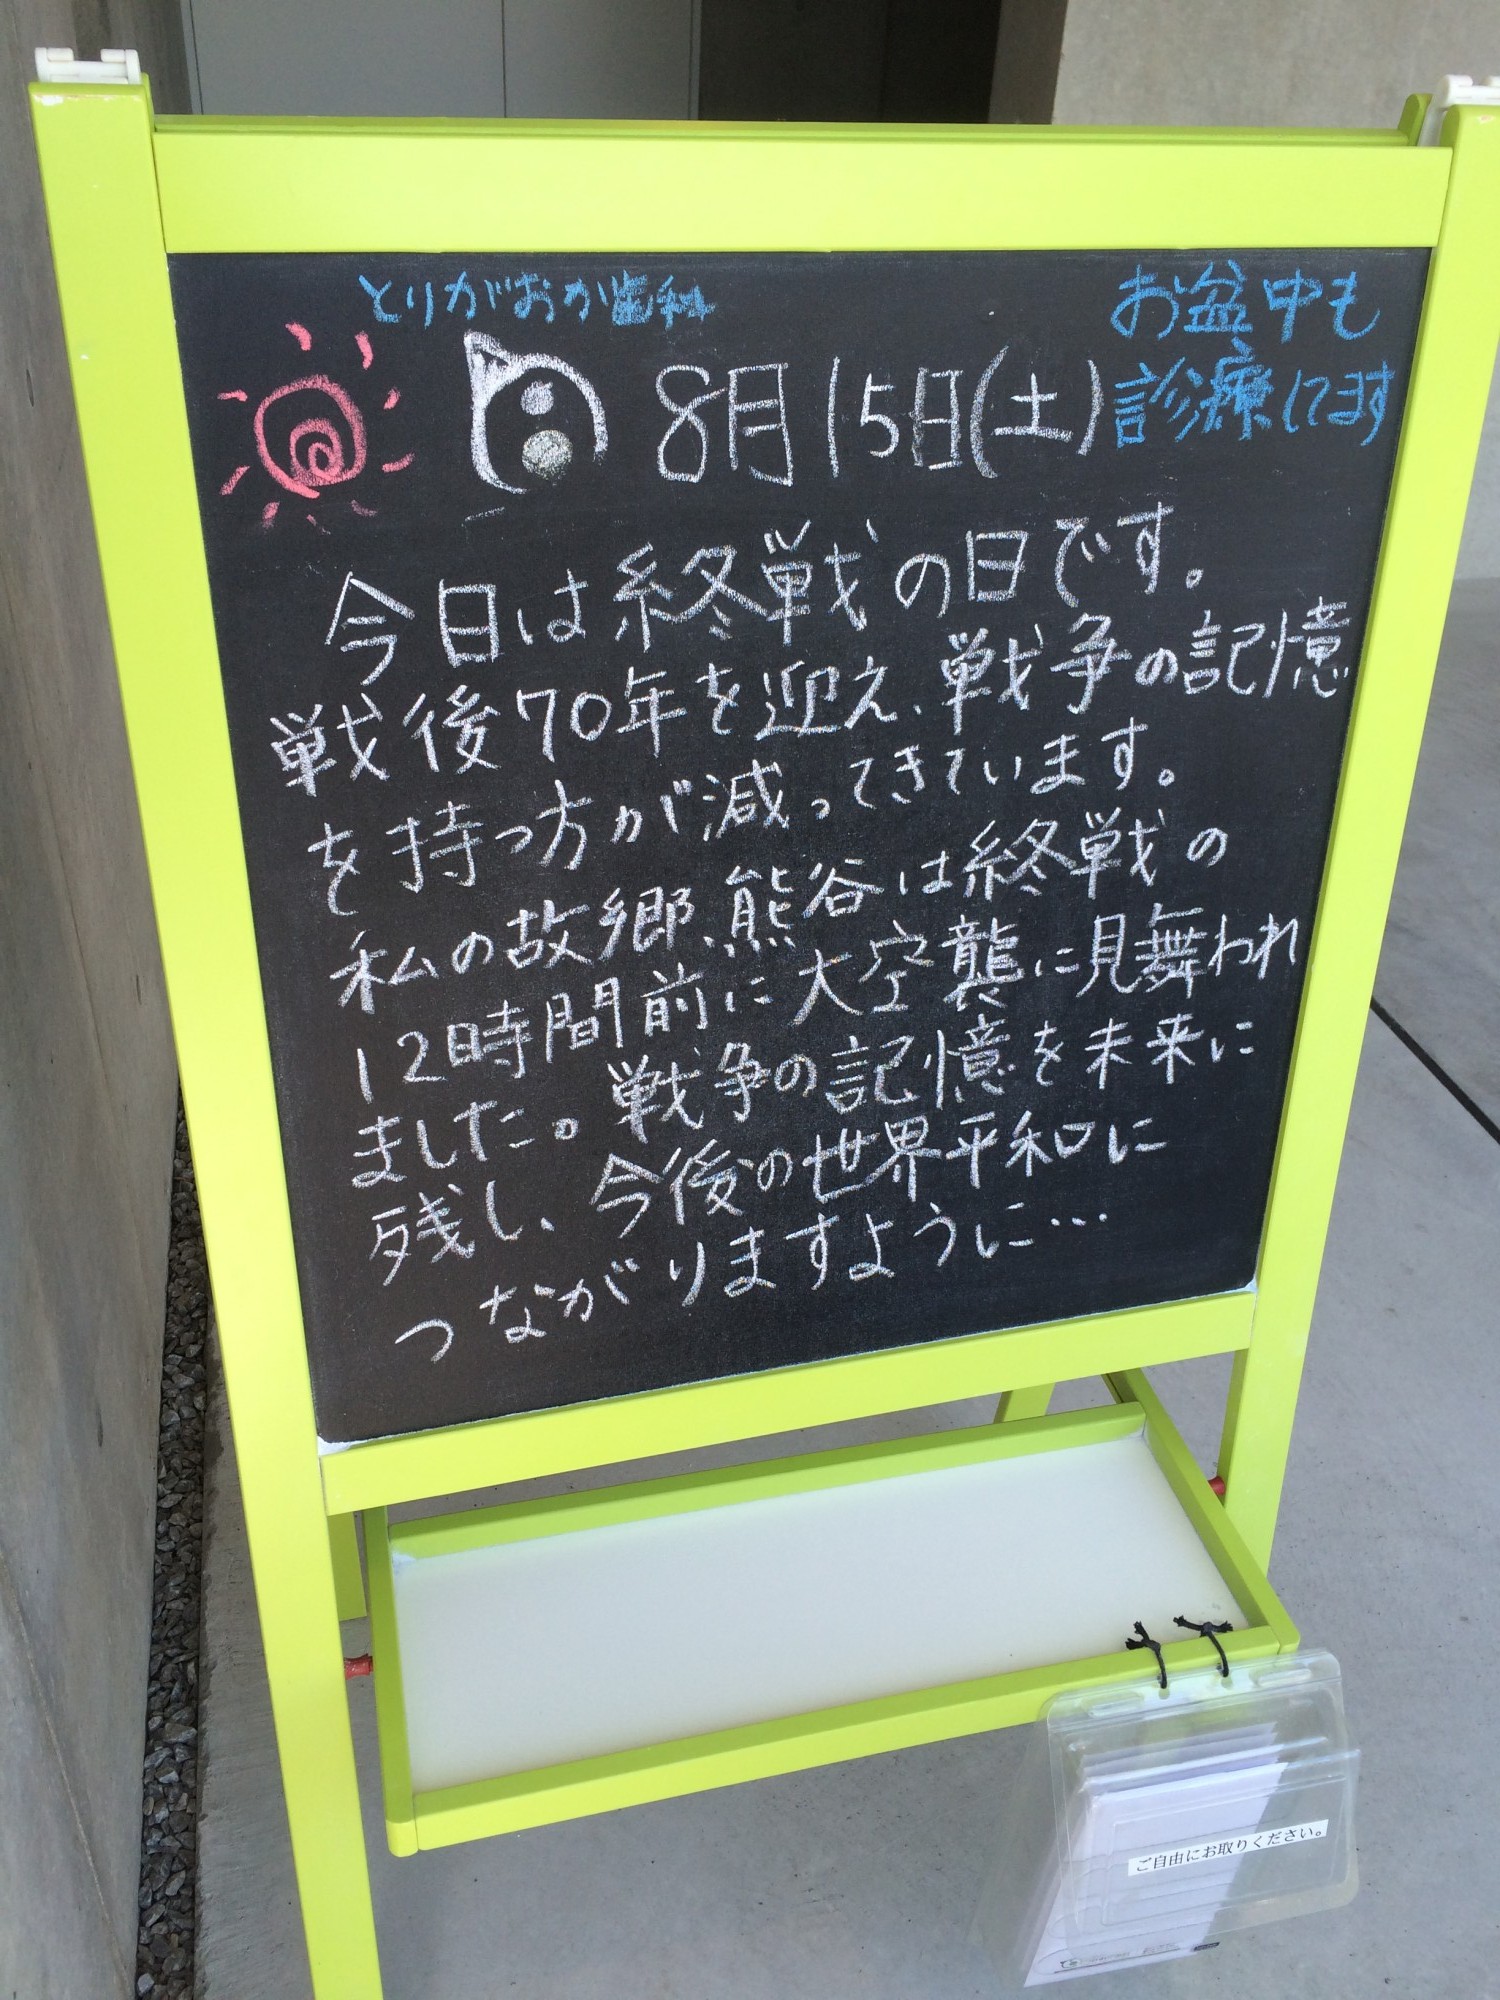 とりがおか歯科
お盆中も
診療してます
8月15日(土)
今日は終戦の日です。
戦後70年を迎え、戦争の記憶
を持つ方が減ってきています。
私の故郷、熊谷は終戦の
12時間前に大空襲に見舞われ
ました。戦争の記憶を未来に
残し、今後の世界平和に
つながりますように…
ご自由にお取りください。